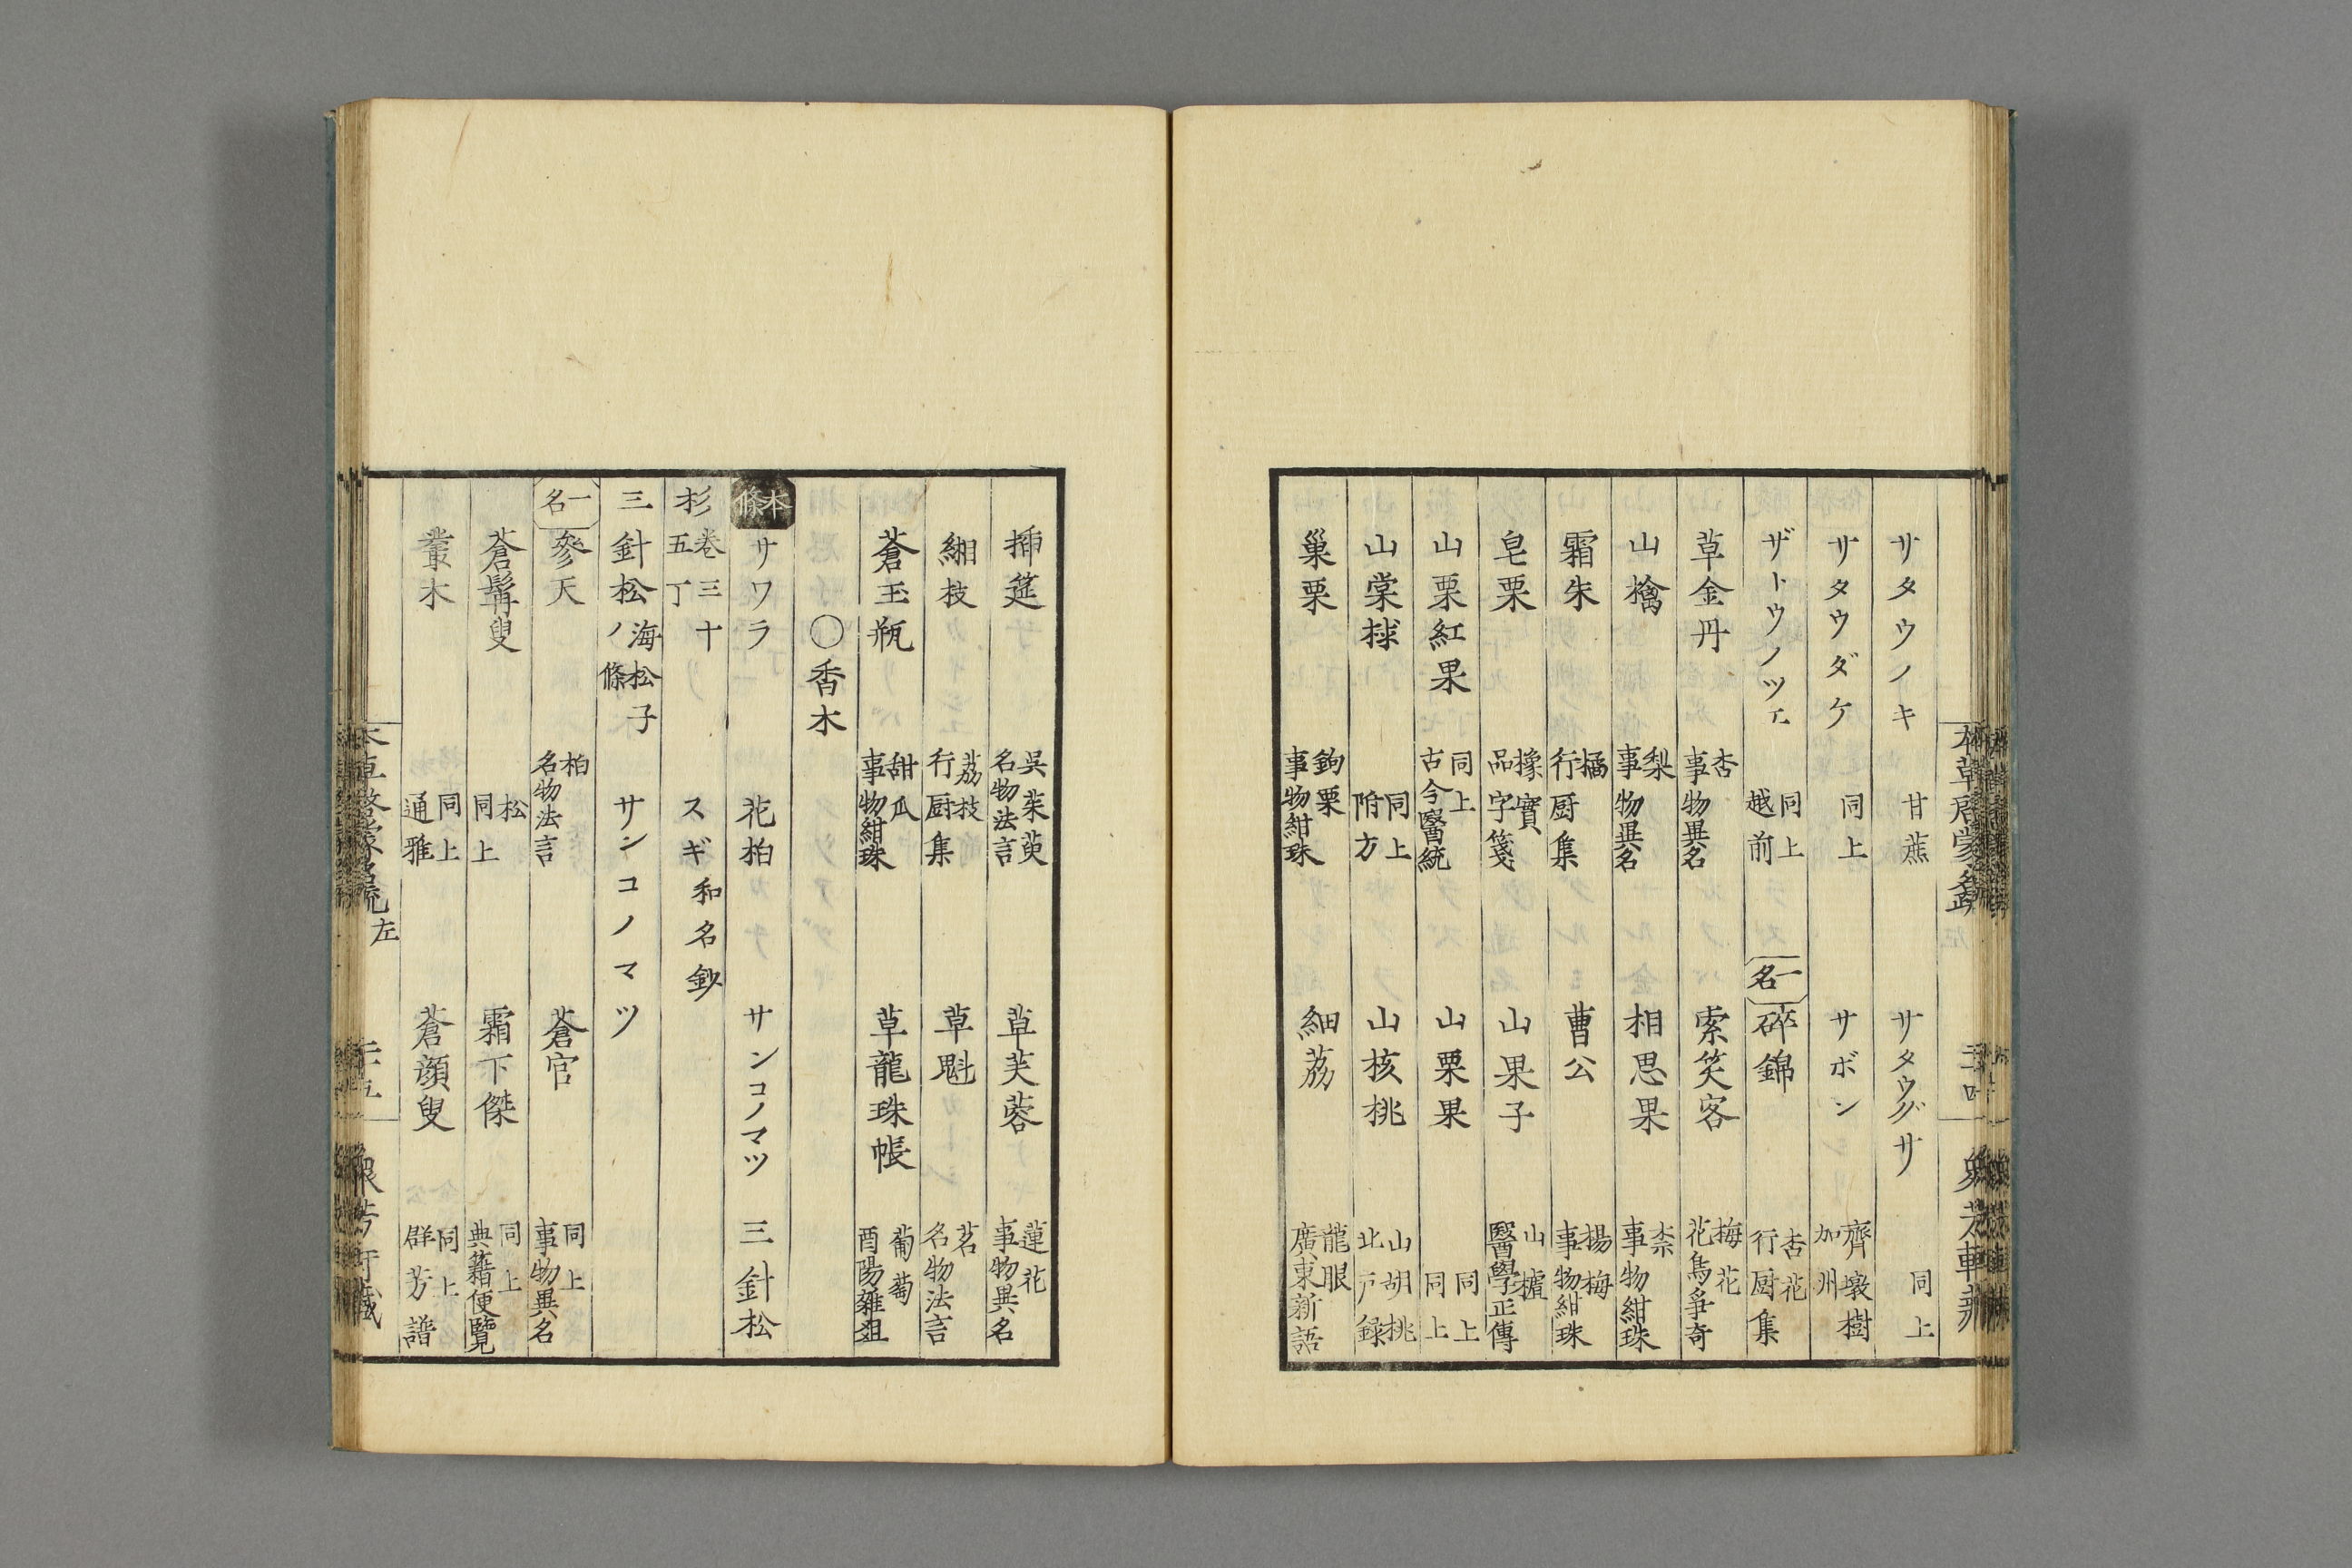 サタウノキ 甘蔗 サタウグサ 同上
サタウダケ 同上 サボン 齊墩樹 加州
ザトウノツエ 同上 越前 一名 碎錦 杏花 行厨集
草金丹 杏 事物異名 索笑客 梅花 花鳥爭奇
山檎 梨 事物異名 相思果 柰 事物紺珠
霜朱 橘 行厨集 曹公 楊梅 事物紺珠
皂栗 橡實 品字箋 山果子 山樝 醫學正傳
山栗紅果 同上 古今醫統 山栗果 同上 同上
山棠梂 同上 附方 山核桃 山胡桃 北戸録
巢栗 鉤栗 事物紺珠 細茘 龍眼 廣東新語
挿莚 呉茱萸 名物法言 草芙蓉 蓮花 事物異名
緗枝 茘枝 行厨集 草魁 茗 名物法言
蒼玉瓶 甜瓜 事物紺珠 草龍珠帳 葡萄 酉陽雜爼
〇香木
本條 サワラ 花柏 サンコノマツ 三針松
杉 卷三十 五丁 スギ 和名鈔
三針松 海松子ノ條 サンコノマツ
一名 參天 柏 名物法言 蒼官 同上 事物異名
蒼髯叟 松 同上 霜下傑 同上 典籍便覽
叢木 同上 通雅 蒼顔叟 同上 群芳譜
左